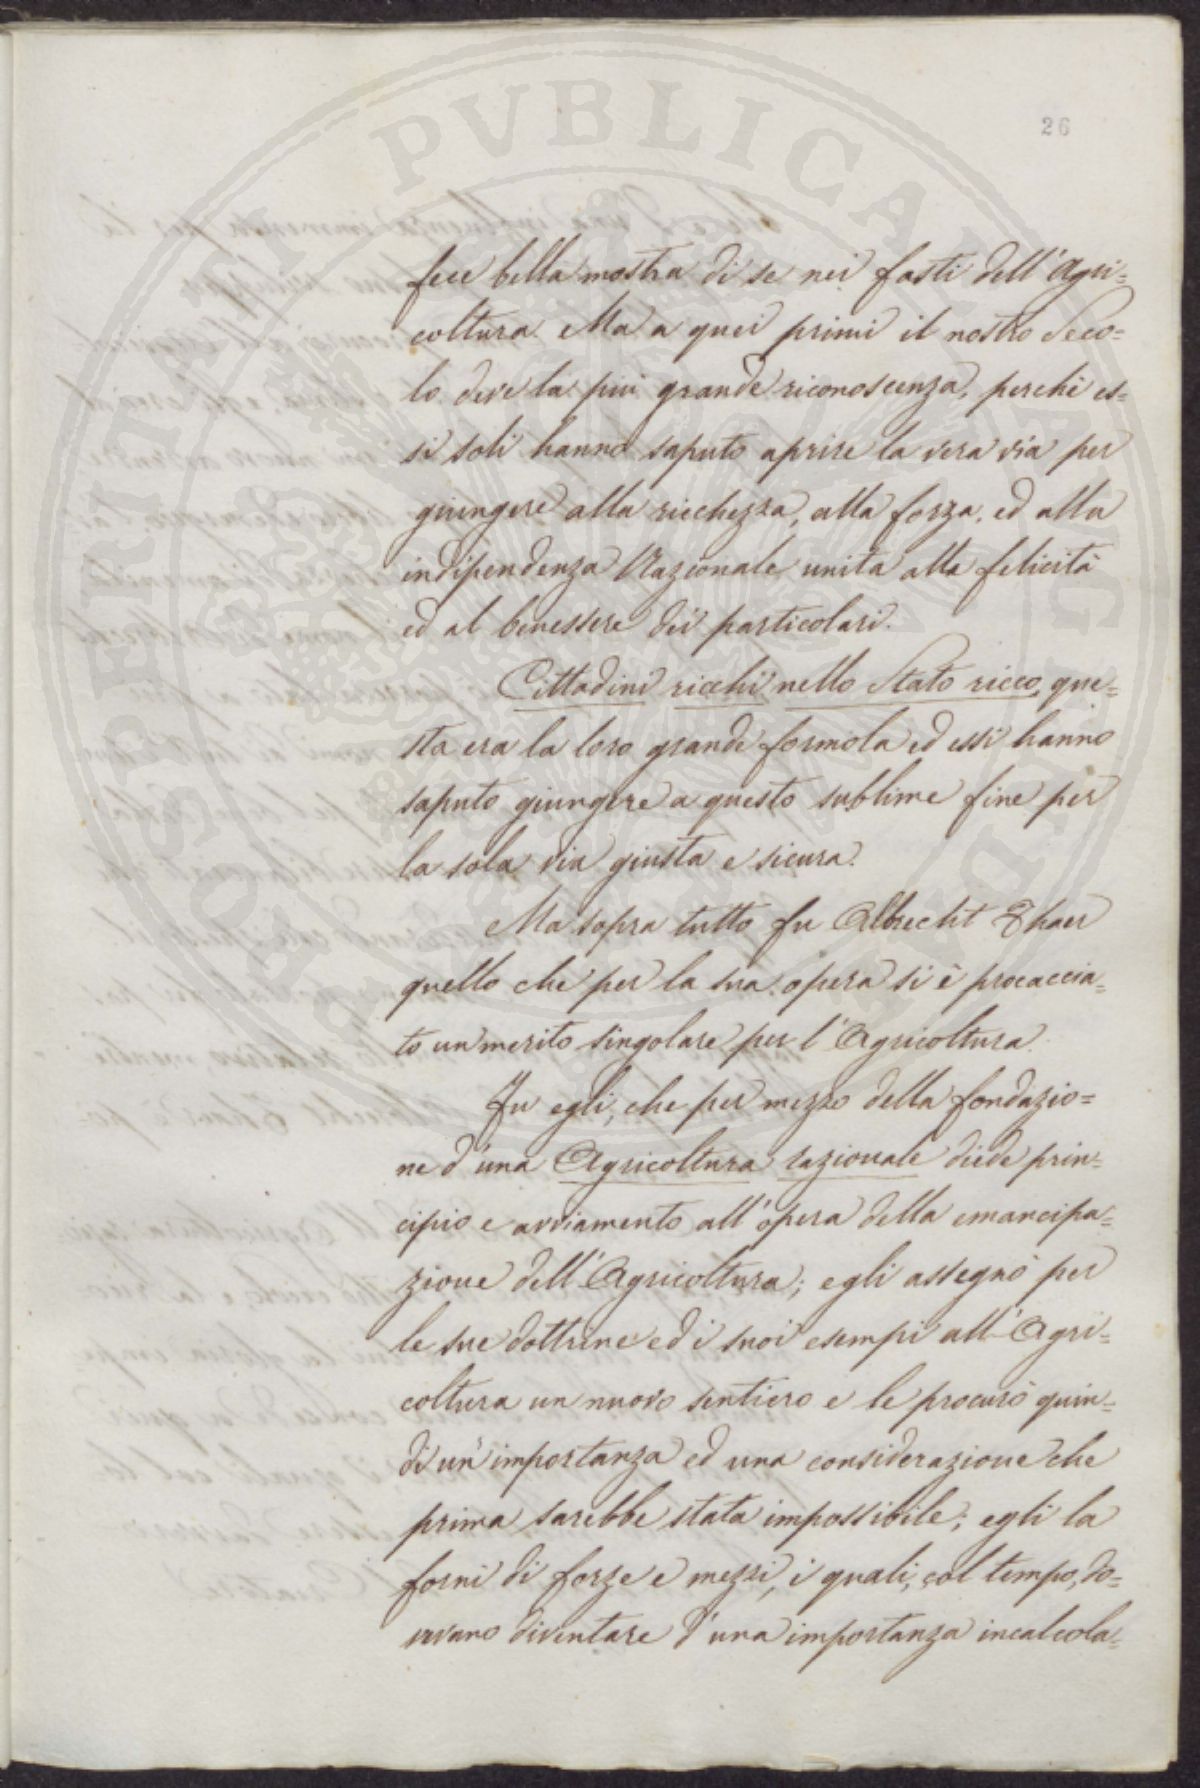 26
fece bella mostra di se nei fasti dell'Agri=
coltura. Ma a quei primi il nostro Seco=
lo deve la più grande riconoscenza, perchè es=
si soli hanno saputo aprire la vera via per
giungere alla ricchezza, alla forza, ed alla
indipendenza Nazionale unita alla felicità
ed al benessere dei particolari.
Cittadini ricchi nello Stato ricco, que=
sta era la loro grande formola ed essi hanno
saputo giungere a questo sublime fine per
la sola via giusta e sicura.
Ma sopra tutto fu Albrecht Thaer
quello che per la sua opera si è procaccia=
to un merito singolare per l'Agricoltura.
Fu egli, che per mezzo della fondazio=
ne d'una Agricoltura razionale diede prin=
cipio e avviamento all'opera della emancipa=
zione dell'Agricoltura; egli assegnò per
le sue dottrine ed i suoi esempi all'Agri=
coltura un nuovo sentiero e le procurò quin=
di un'importanza ed una considerazione che
prima sarebbe stata impossibile; egli la
fornì di forze e mezzi, i quali, col tempo, do=
vevano diventare d'una importanza incalcola=